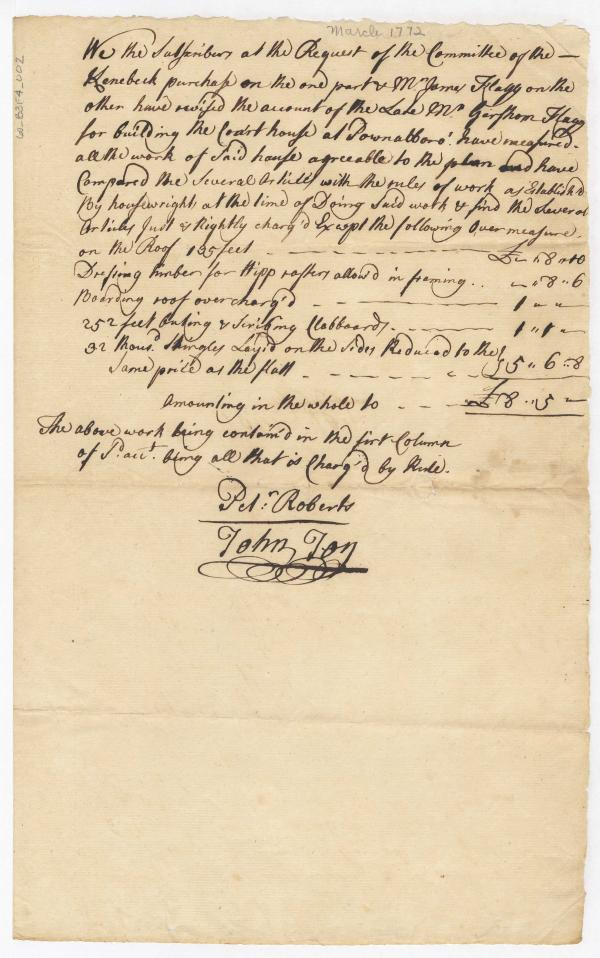 March 1772
We the Subscribers at the Request of the Committee of the —
Kenebeck purchase on the one part & Mr. James Flagg on the
other have revised the account of the Late Mr. Gershom Flagg
for building the Courthouse at Pownalboro' have measured
all the work of Said house agreeable to the plan and have
Compared the Several Articles with the rules of work as Establish'd
By housewrights at the time of Doing Said work & find the Several
Articles Just & Rightly charg'd Except the following Over measure.
on the Roof 195 feet — — — £ — " 8 " 10
Dressing timber for Hipp rafters allow'd in framing . . — " 8 " 6
Boarding roof overcharg'd — — — 1 " — "
252 feet Puting & Scribing Clabboards — — — 1 " 1 " —
32 thous.d Shingles Lay'd on the Sides Reduced to the
Same price as the flatt — — — 5 " 6 " 8
Amounting in the whole to — — — £8 " 5 " —
The above work being contain'd in the first Column
of Sd. acct. being all that is Charg'd by Rule.
Petr. Roberts
John Joy